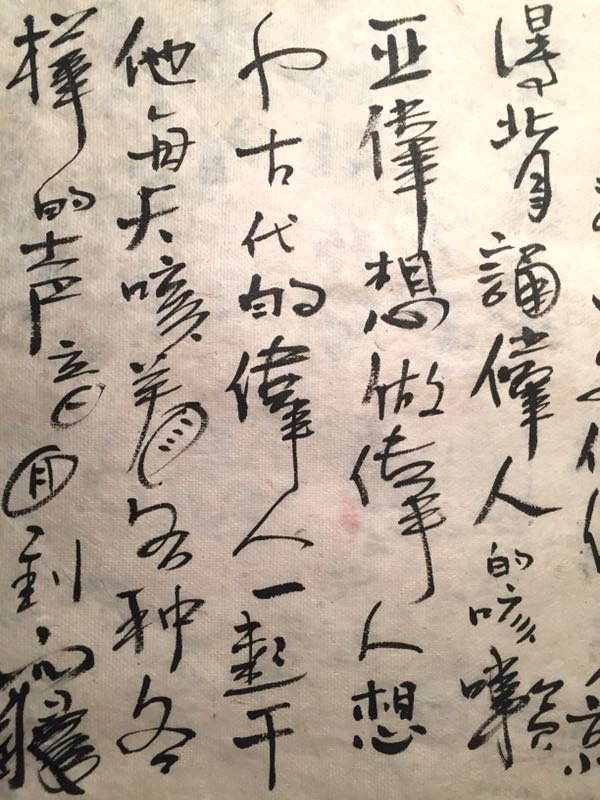 得背誦偉人的咳嗽
亚偉想做偉人想
和古代的偉人一起干
他每天咳着各种各
样的声音回到